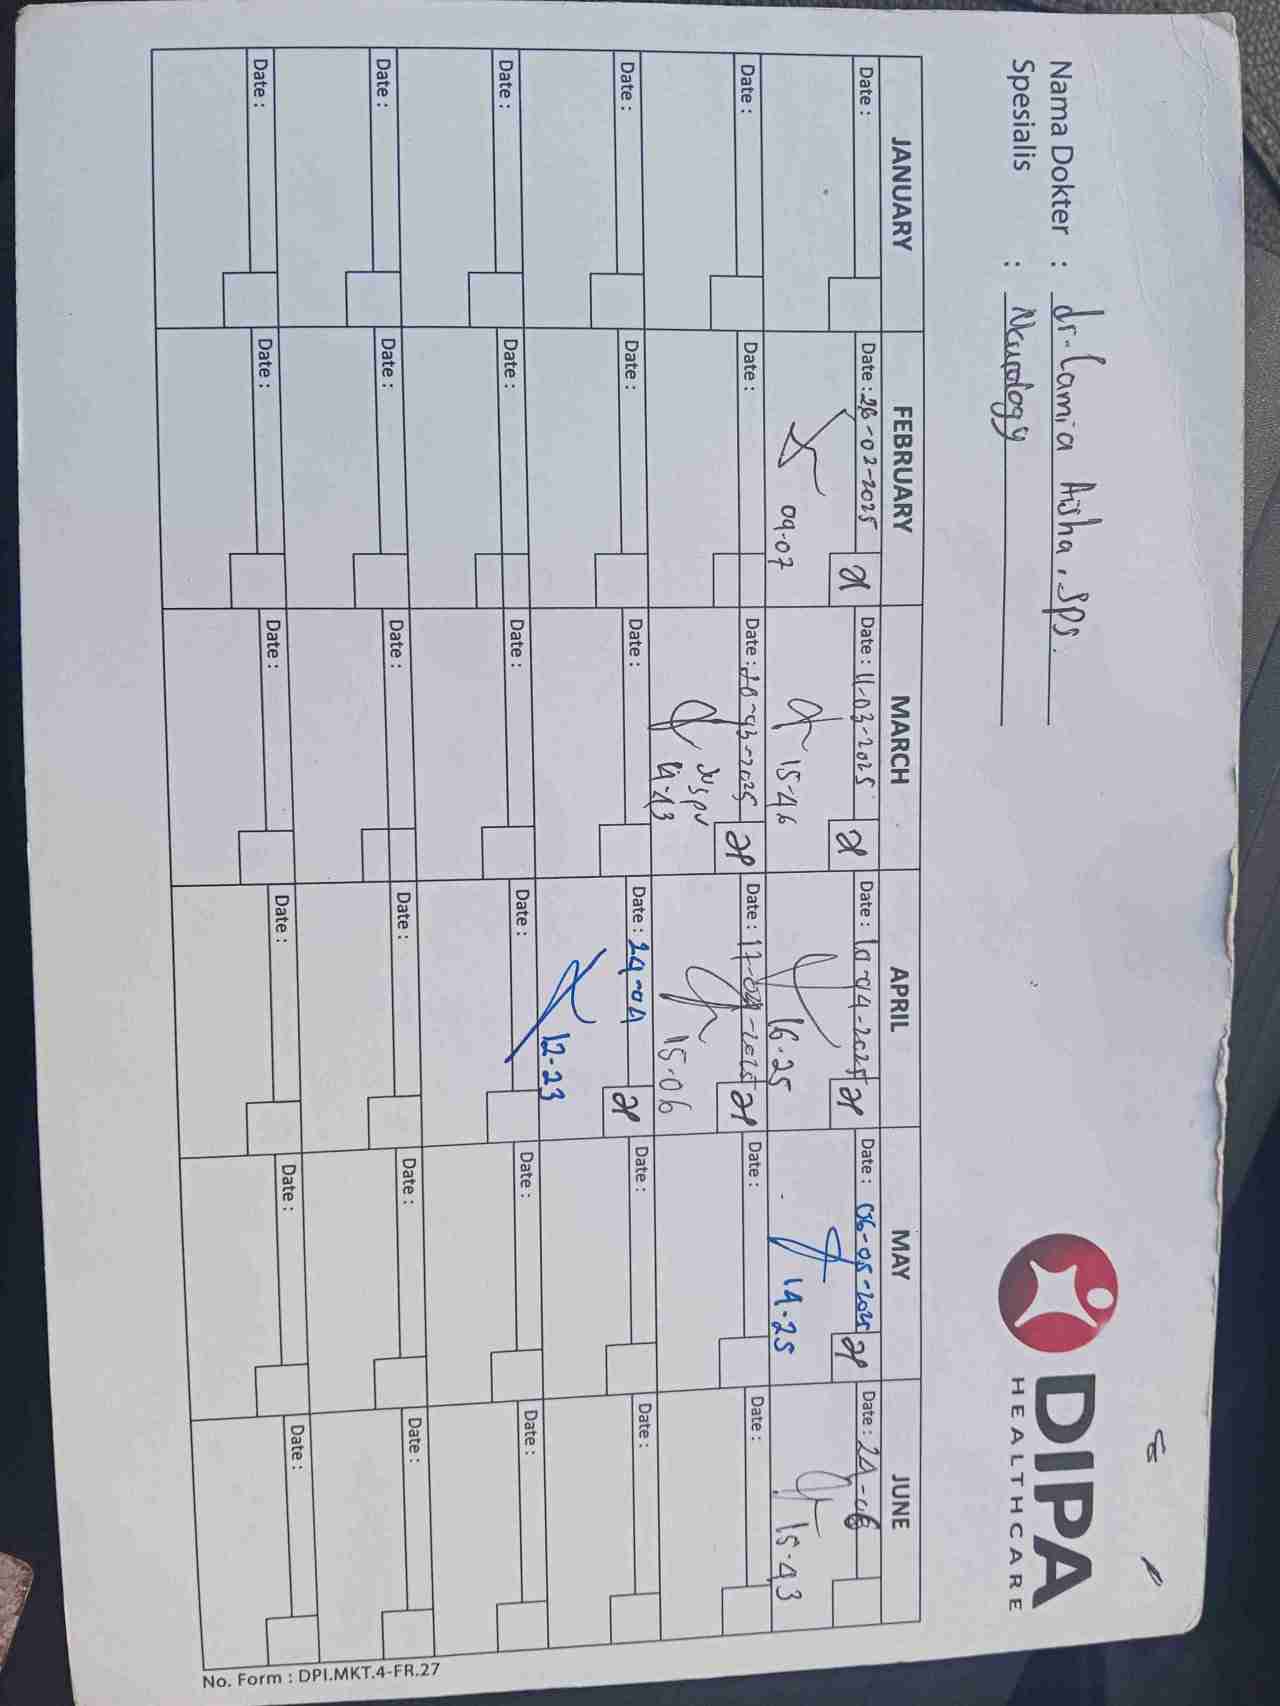 DIPA
HEALTHCARE
Nama Dokter : dr. Lamia Aisha, SpS.
Spesialis : Neurology
JANUARY FEBRUARY MARCH APRIL MAY JUNE
Date : Date : 26-02-2025 Date : 11-03-2025 Date : 10-04-2025 Date : 06-05-2025 Date : 24-06
09.07 15.46 16.25 14.25 15.43
Date : Date : Date : 20-03-2025 Date : 17-04-2025 Date : Date :
15.06
Date : Date : Date : Date : 24-04 Date : Date :
12.23
Date : Date : Date : Date : Date : Date :
Date : Date : Date : Date : Date : Date :
Date : Date : Date : Date : Date : Date :
No. Form : DPI.MKT.4-FR.27